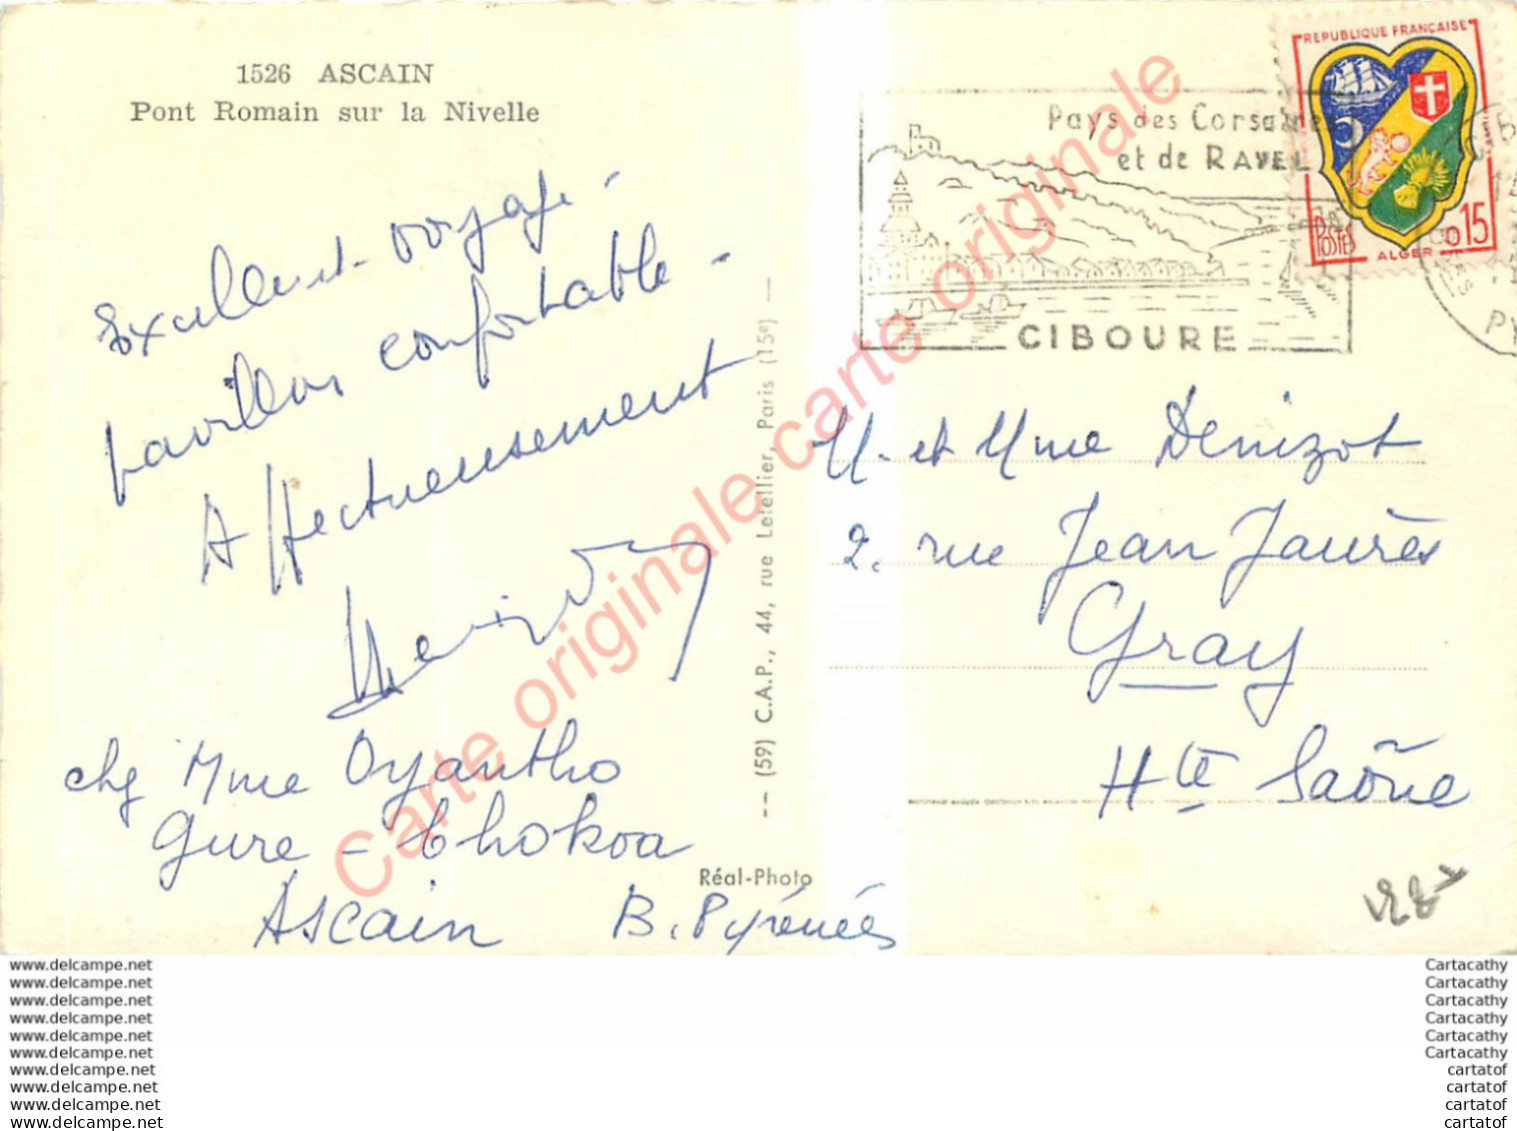 1526 ASCAIN
Pont Romain sur la Nivelle
Excellent voyage -
pavillon confortable -
Affectueusement
chez Mme Oyantho
Gure - Etchokoa
Ascain B. Pyrénées
-- (59) C.A.P., 44, rue Letellier, Paris (15e) --
Réal-Photo
Pays des Corsaires
et de RAVEL
CIBOURE
REPUBLIQUE FRANÇAISE
POSTES
ALGER
0 15
M. et Mme Denizot
2. rue Jean Jaurès
Gray
Hte Saône
Carte originale carte originale
www.delcampe.net
www.delcampe.net
www.delcampe.net
www.delcampe.net
www.delcampe.net
www.delcampe.net
www.delcampe.net
www.delcampe.net
www.delcampe.net
www.delcampe.net
Cartacathy
Cartacathy
Cartacathy
Cartacathy
Cartacathy
Cartacathy
cartatof
cartatof
cartatof
cartatof